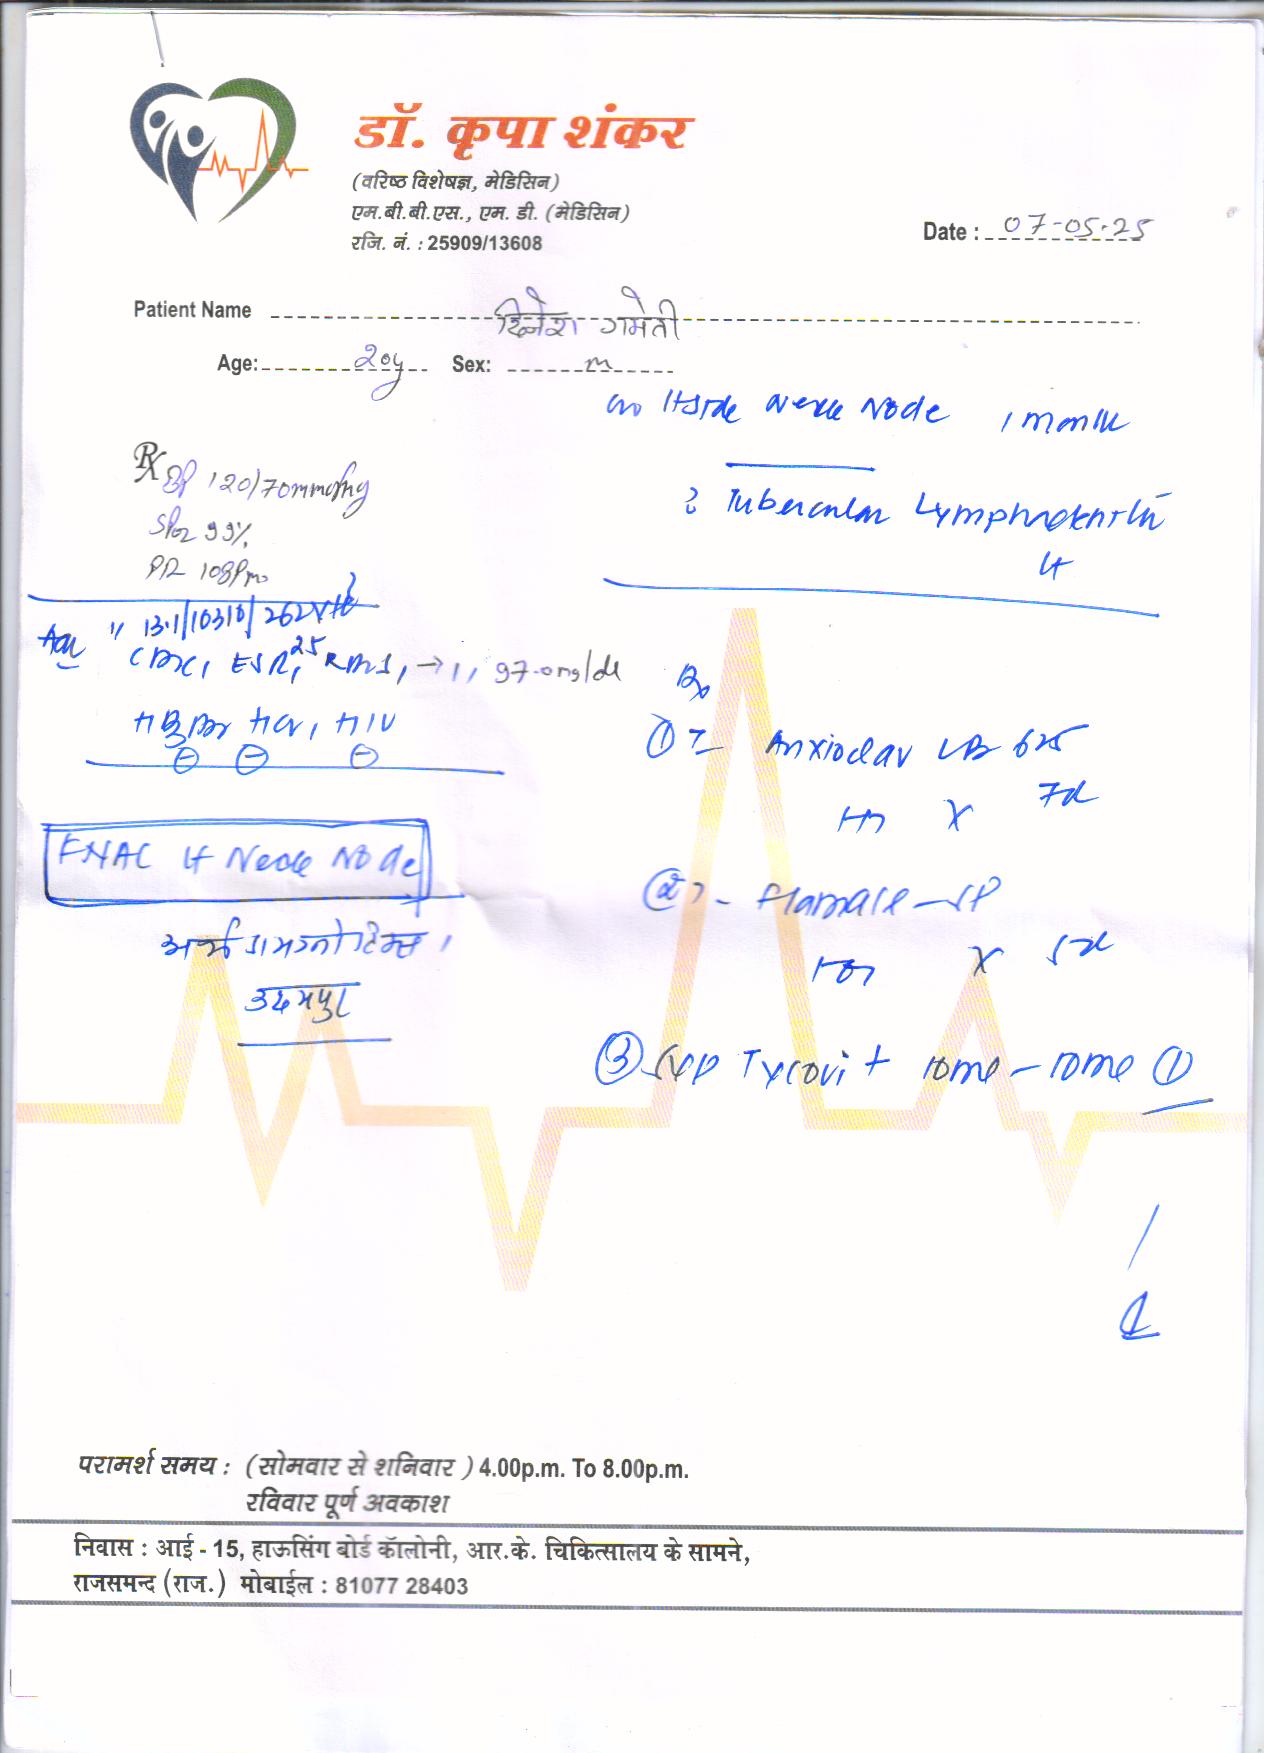 डॉ. कृपा शंकर
(वरिष्ठ विशेषज्ञ, मेडिसिन)
एम.बी.बी.एस., एम. डी. (मेडिसिन)
रजि. नं. : 25909/13608
Date : 07-05-25
Patient Name दिनेश गमेती
Age: 20y Sex: m
Neck Node 1 month
? Tubercular Lymphadenitis
Lt
Rx
BP 120/70mmofhg
SPO2 99%
PR 108Pm
13.1/10310/262
CBC, ESR, 25 RBS, → 97.0mg/dl
HBsAg HCV, HIV
⊖ ⊖ ⊖
FNAC Lt Neck Node
अर्थ डायग्नोस्टिक्स,
उदयपुर
Rx
① T- Anxioclav LB 625
X 7d
② T- flamase-SP
X 5d
③ Syp Tycovit 10ml - 10ml ①
परामर्श समय : (सोमवार से शनिवार ) 4.00p.m. To 8.00p.m.
रविवार पूर्ण अवकाश
निवास : आई - 15, हाऊसिंग बोर्ड कॅालोनी, आर.के. चिकित्सालय के सामने,
राजसमन्द (राज.) मोबाईल : 81077 28403